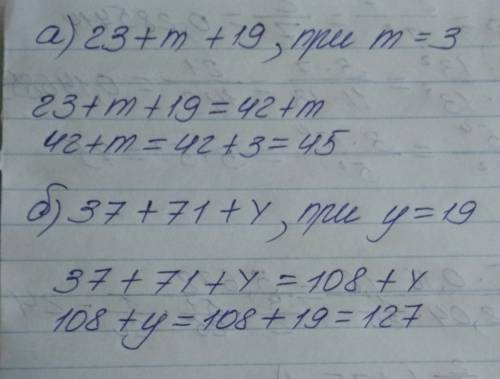 а) 23+m+19, при m=3
23+m+19=42+m
42+m=42+3=45
б) 37+71+Y, при y=19
37+71+Y=108+Y
108+y=108+19=127